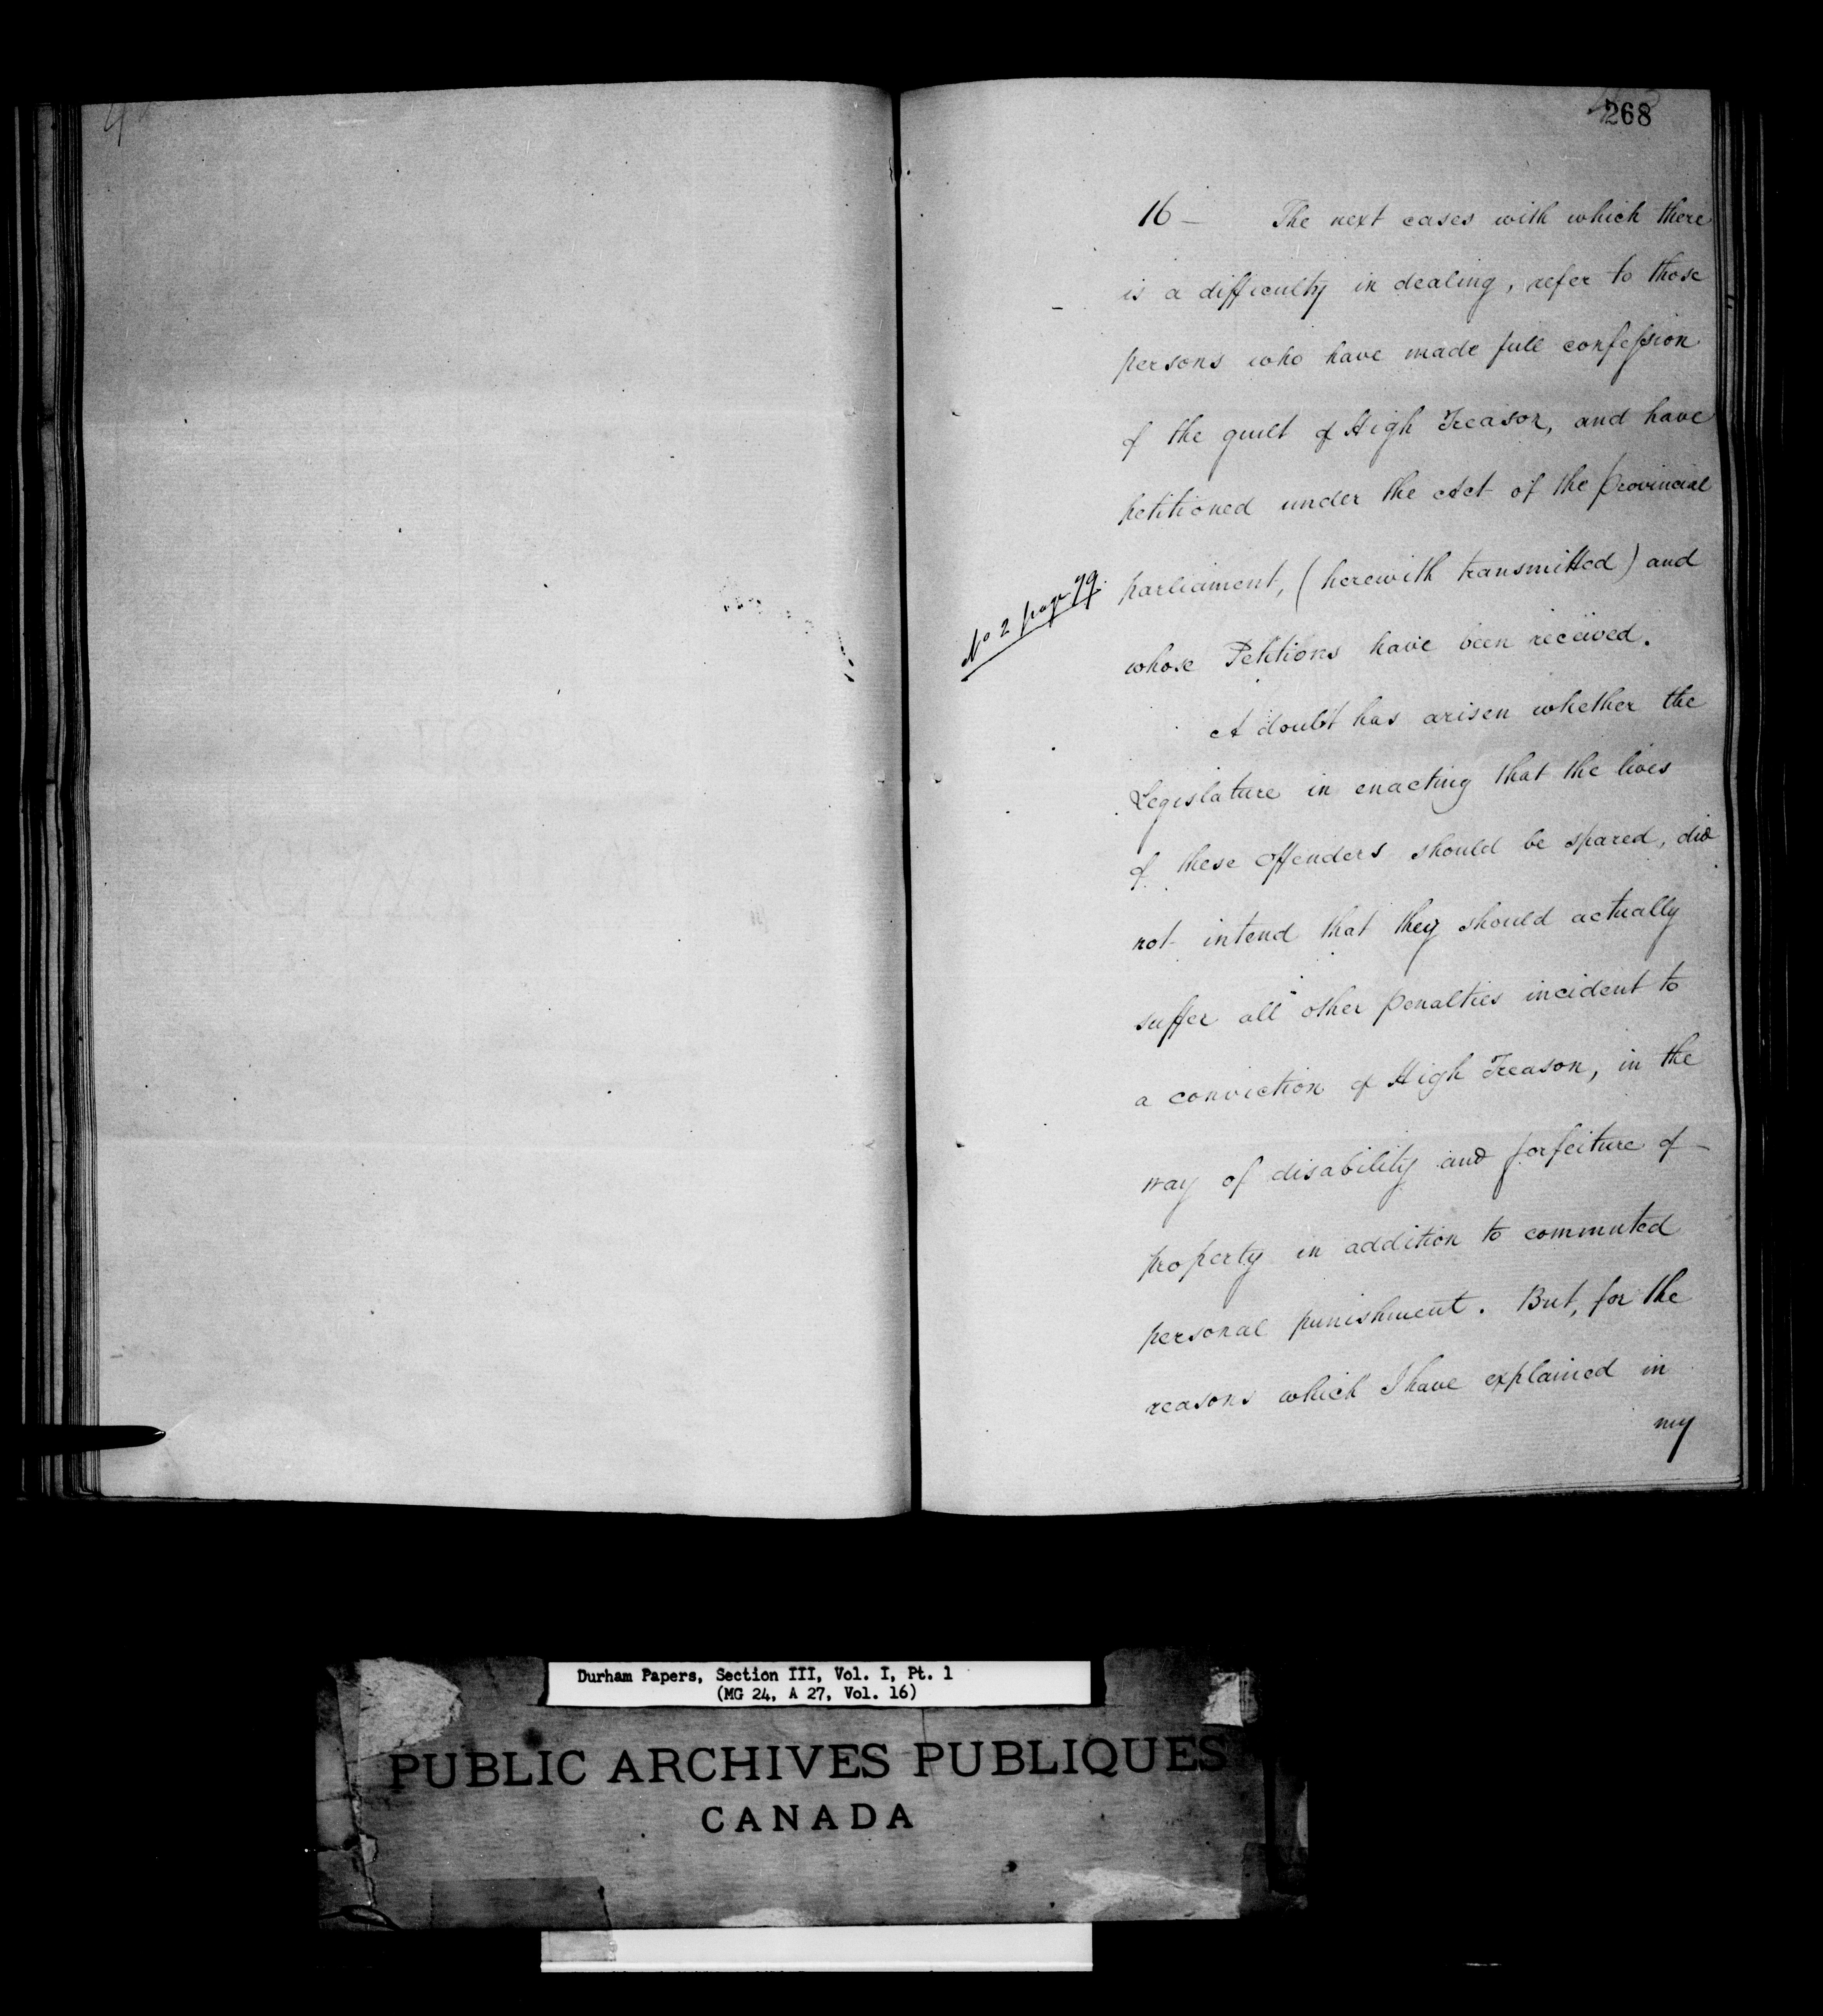 268
16 — The next cases with which there
is a difficulty in dealing, refer to those
persons who have made full confession
of the guilt of High Treason, and have
petitioned under the Act of the Provincial
No 2 page 79.
parliament, (herewith transmitted) and
whose Petitions have been received.
A doubt has arisen whether the
Legislature in enacting that the lives
of these offenders should be spared, did
not intend that they should actually
suffer all other penalties incident to
a conviction of High Treason, in the
way of disability and forfeiture of
property in addition to commuted
personal punishment. But, for the
reasons which I have explained in
my
Durham Papers, Section III, Vol. I, Pt. 1
(MG 24, A 27, Vol. 16)
PUBLIC ARCHIVES PUBLIQUES
CANADA